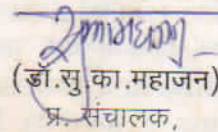 (डॉ.सु.का.महाजन)
प्र. संचालक,